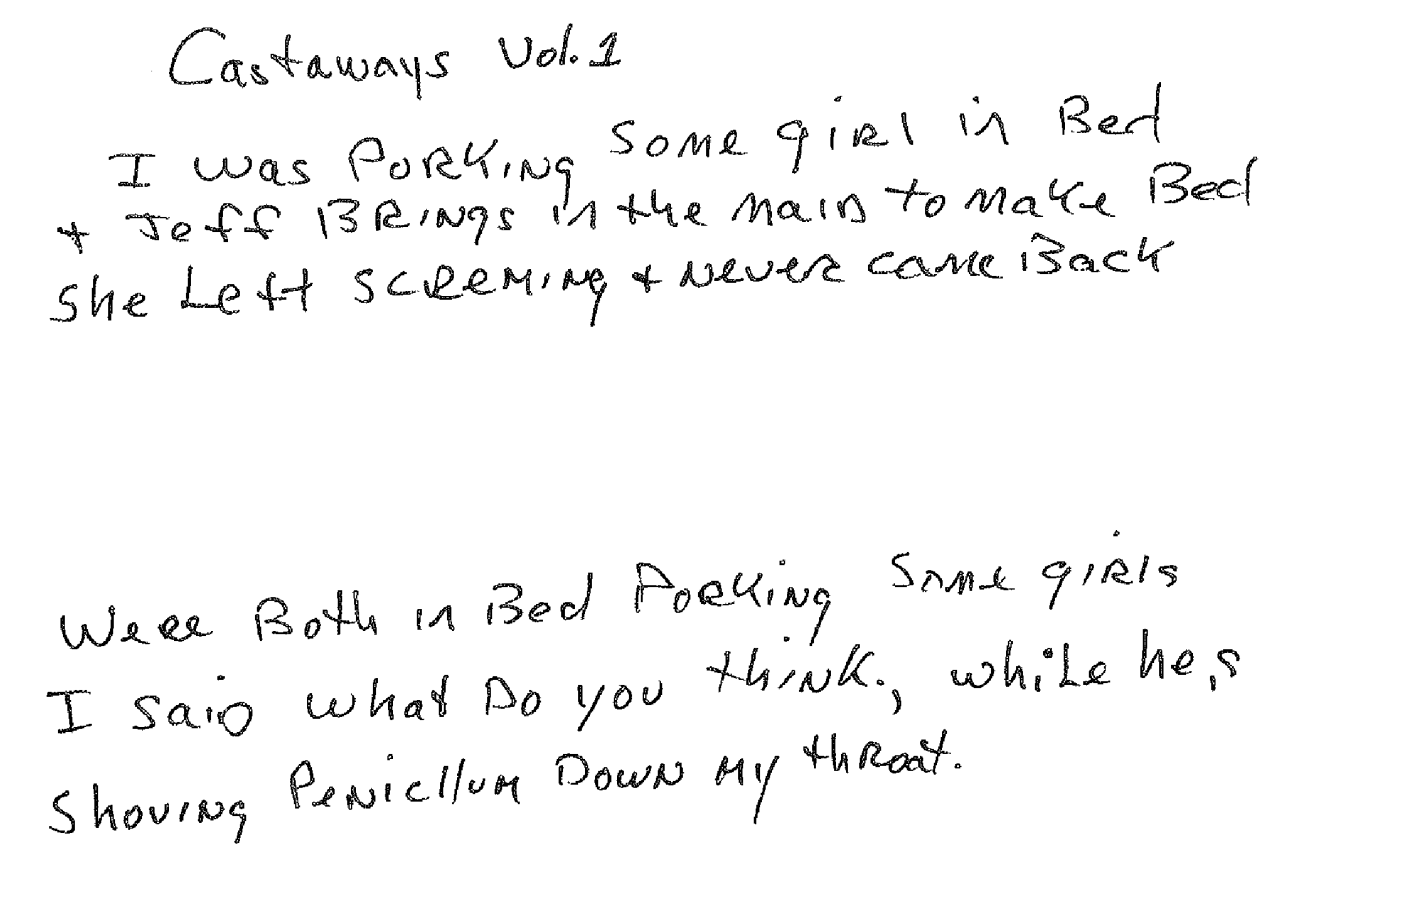 Castaways Vol. 1
I was Porking some girl in Bed
+ Jeff Brings in the maid to make Bed
she Left screming + never came Back
Were Both in Bed Porking some girls
I said what Do you think., while he,s
shoving Penicllum Down my throat.